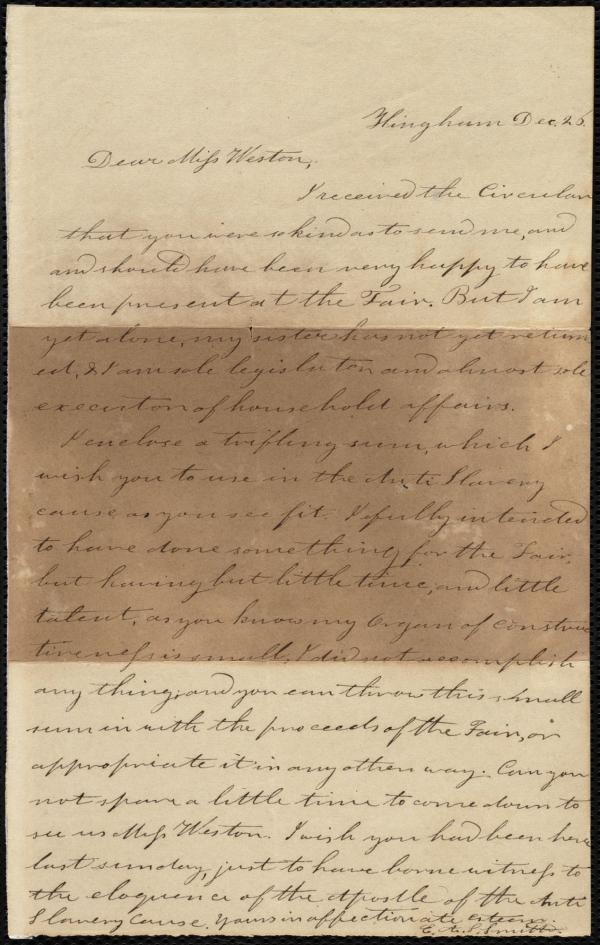 Hingham Dec. 26.
Dear Miss Weston,
I received the Circular
that you were so kind as to send me, and
and should have been very happy to have
been present at the Fair. But I am
yet alone, my sister has not yet return
ed, & I am sole legislator and almost sole
executor of household affairs.
I enclose a trifling sum, which I
wish you to use in the Anti Slavery
cause as you see fit. I fully intended
to have done something for the Fair,
but having but little time, and little
talent, as you know my Organ of construc
tiveness is small, I did not accomplish
any thing; and you can throw this small
sum in with the proceeds of the Fair, or
appropriate it in any other way. Can you
not spare a little time to come down to
see us Miss Weston. I wish you had been here
last sunday, just to have borne witness to
the eloquence of the Apostle of the Anti
Slavery Cause. Yours in affectionate esteem.
E. A. S. Smith.